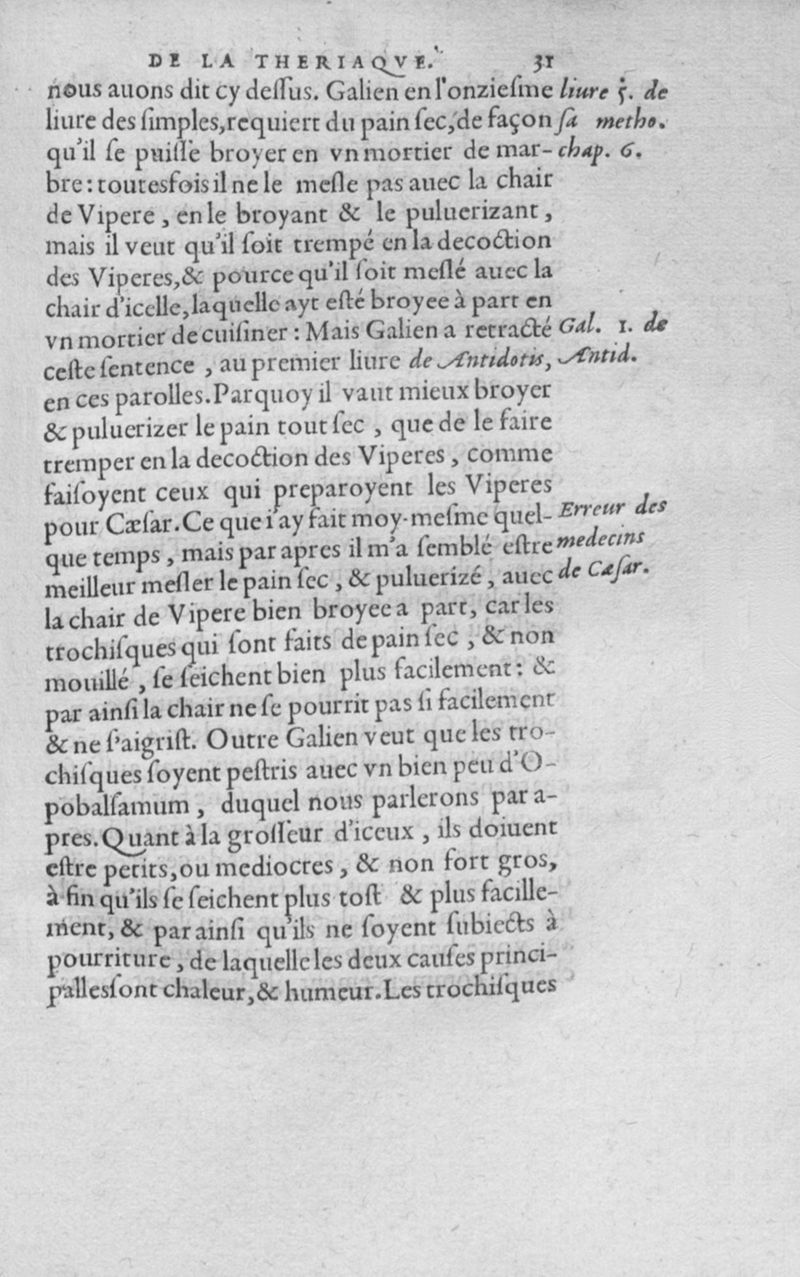 DE LA THERIAQVE. 31
nous auons dit cy deſſus. Galien en l'onzieſme liure 5. de
liure des ſimples, requiert du pain ſec, de façon ſa metho.
qu'il ſe puiſſe broyer en vn mortier de mar- chap. 6.
bre: toutesfois il ne le meſle pas auec la chair
de Vipere, en le broyant & le puluerizant,
mais il veut qu'il ſoit trempé en la decoction
des Viperes, & pource qu'il ſoit meſlé auec la
chair d'icelle, laquelle ayt eſté broyee à part en
vn mortier de cuiſiner: Mais Galien a retracté Gal. 1. de
ceſte ſentence, au premier liure de Antidotis, Antid.
en ces parolles. Parquoy il vaut mieux broyer
& puluerizer le pain tout ſec, que de le faire
tremper en la decoction des Viperes, comme
faiſoyent ceux qui preparoyent les Viperes
pour Cæſar. Ce que i'ay fait moy-meſme quel- Erreur des
que temps, mais par apres il m'a ſemblé eſtre medecins
meilleur meſler le pain ſec, & puluerizé, auec de Cæſar.
la chair de Vipere bien broyee a part, car les
trochiſques qui ſont faits de pain ſec, & non
mouillé, ſe ſeichent bien plus facilement: &
par ainſi la chair ne ſe pourrit pas ſi facilement
& ne ſ'aigriſt. Outre Galien veut que les tro-
chiſques ſoyent peſtris auec vn bien peu d'O-
pobalſamum, duquel nous parlerons par a-
pres. Quant à la groſſeur d'iceux, ils doiuent
eſtre petits, ou mediocres, & non fort gros,
à fin qu'ils ſe ſeichent plus toſt & plus facille-
ment, & par ainſi qu'ils ne ſoyent ſubiects à
pourriture, de laquelle les deux cauſes princi-
palles ſont chaleur, & humeur. Les trochiſques